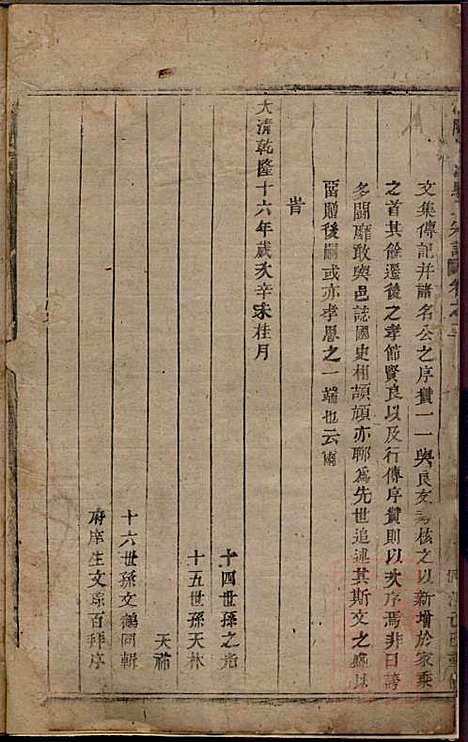 文集傳記并諸名公之序贊一一與良友核之以新增於家乘
之首其餘遷後之孝節賢良以及行傳序贊則以次序焉非曰誇
多鬬靡敢與邑誌國史相頡頏亦聊為先世追述其斯文之盛以
畱贈後嗣或亦孝思之一端也云爾
旹
大清乾隆十六年歲次辛未桂月
十四世孫之光
十五世孫天林
天
十六世孫文鶴同輯
府庠生文 百拜序